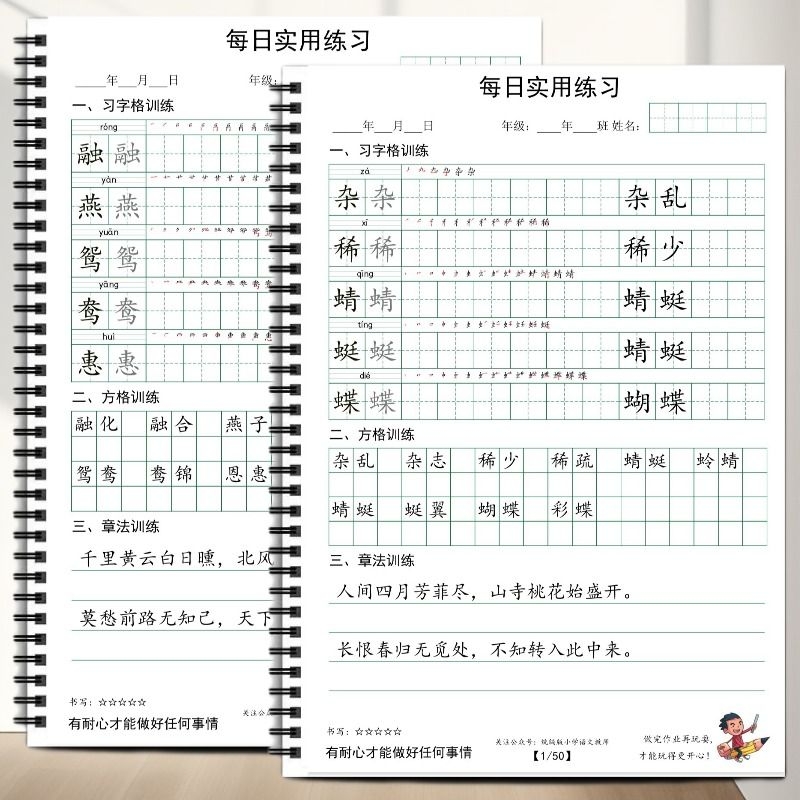 每日实用练习
____年___月___日 年级:
一、习字格训练
róng
融 融
yàn
燕 燕
yuān
鸳 鸳
yāng
鸯 鸯
huì
惠 惠
二、方格训练
融化 融合 燕子
鸳鸯 鸯锦 恩惠
三、章法训练
千里黄云白日曛，北风
莫愁前路无知己，天下
书写：☆☆☆☆☆
关注公众
有耐心才能做好任何事情
每日实用练习
____年___月___日 年级：___年___班 姓名：
一、习字格训练
zá
杂 杂 杂乱
xī
稀 稀 稀少
qīng
蜻 蜻 蜻蜓
tíng
蜓 蜓 蜻蜓
dié
蝶 蝶 蝴蝶
二、方格训练
杂乱 杂志 稀少 稀疏 蜻蜓 蛉蜻
蜻蜓 蜓翼 蝴蝶 彩蝶
三、章法训练
人间四月芳菲尽，山寺桃花始盛开。
长恨春归无觅处，不知转入此中来。
书写：☆☆☆☆☆
有耐心才能做好任何事情
关注公众号：统编版小学语文教师
【1/50】
做完作业再玩耍，
才能玩得更开心！